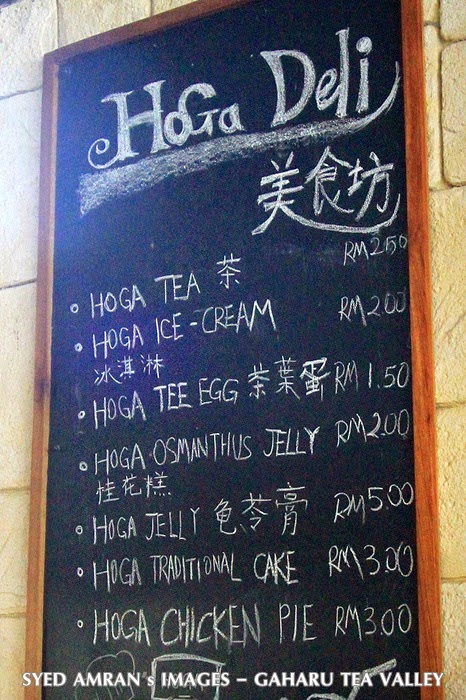 HoGa Deli
美食坊
• HOGA TEA 茶 RM 2.50
• HOGA ICE-CREAM RM 2.00
冰淇淋
• HOGA TEE EGG 茶葉蛋 RM 1.50
• HOGA OSMANTHUS JELLY RM 2.00
桂花糕
• HOGA JELLY 龟苓膏 RM 5.00
• HOGA TRADITIONAL CAKE RM 3.00
• HOGA CHICKEN PIE RM 3.00
SYED AMRAN's IMAGES - GAHARU TEA VALLEY